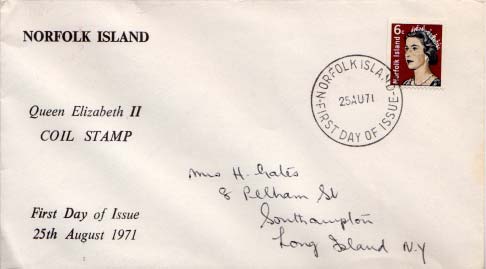 NORFOLK ISLAND
6c
Norfolk Island
NORFOLK ISLAND
25AU71
FIRST DAY OF ISSUE
Queen Elizabeth II
COIL STAMP
Mrs H. Gates
8 Pelham St
Southampton
Long Island N.Y
First Day of Issue
25th August 1971